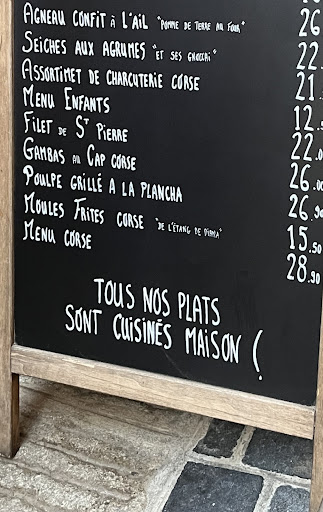 AGNEAU CONFIT à L'AIL "POMME DE TERRE AU FOUR" 26
SEICHES AUX AGRUMES "ET SES GNOCCHI" 22.
ASSORTIMET DE CHARCUTERIE CORSE 21.
MENU ENFANTS 12.5
FILET DE ST PIERRE 22.0
GAMBAS AU CAP CORSE 26.00
POULPE GRILLÉ A LA PLANCHA 26.90
MOULES FRITES CORSE "DE L'ÉTANG DE DIANA" 15.50
MENU CORSE 28.90
TOUS NOS PLATS
SONT CUISINÉS MAISON !